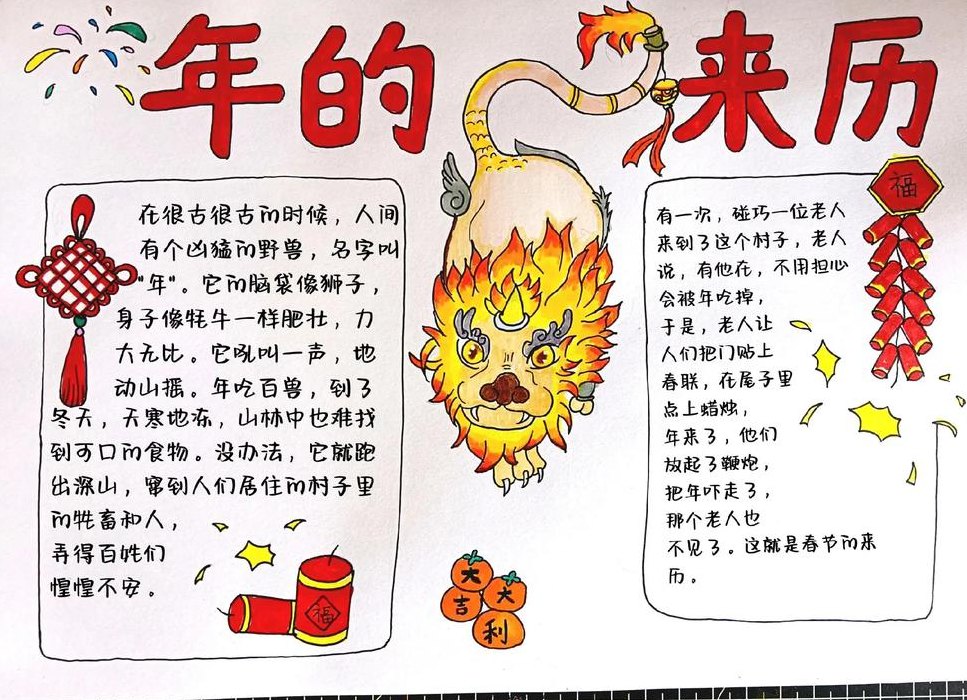 年的来历
在很古很古的时候，人间
有个凶猛的野兽，名字叫
"年"。它的脑袋像狮子，
身子像牦牛一样肥壮，力
大无比。它吼叫一声，地
动山摇。年吃百兽，到了
冬天，天寒地冻，山林中也难找
到可口的食物。没办法，它就跑
出深山，窜到人们居住的村子里
的牲畜和人，
弄得百姓们
惶惶不安。
福
大大
吉利
福
有一次，碰巧一位老人
来到了这个村子，老人
说，有他在，不用担心
会被年吃掉，
于是，老人让
人们把门贴上
春联，在屋子里
点上蜡烛，
年来了，他们
放起了鞭炮，
把年吓走了，
那个老人也
不见了。这就是春节的来
历。